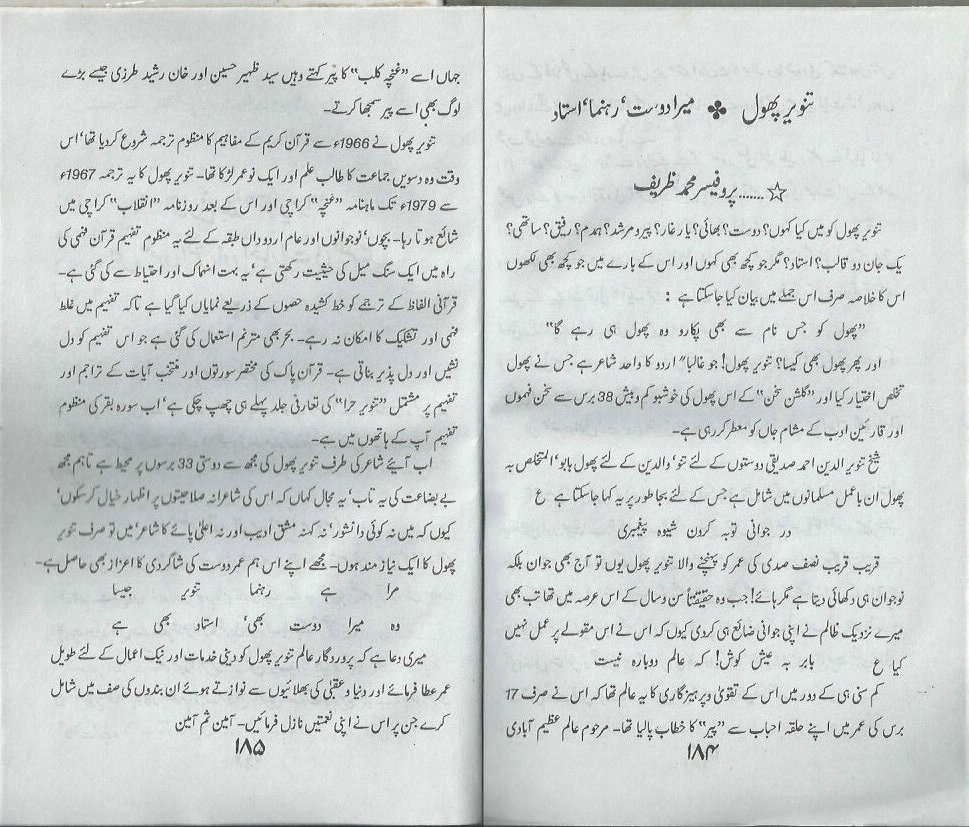 تنویر پھول ♣ میرا دوست‘ رہنما‘ استاد
☆....... پروفیسر محمد ظریف
تنویر پھول کو میں کیا کہوں؟ دوست؟ بھائی؟ یارِ غار؟ پیر و مرشد؟ ہمدم؟ رفیق؟ ساتھی؟
یک جان دو قالب؟ استاد؟ مگر جو کچھ بھی کہوں اور اس کے بارے میں جو کچھ بھی لکھوں
اس کا خلاصہ صرف اس جملے میں بیان کیا جاسکتا ہے :
”پھول کو جس نام سے بھی پکارو وہ پھول ہی رہے گا“
اور پھر پھول بھی کیسا؟ تنویر پھول! جو غالباً اردو کا واحد شاعر ہے جس نے پھول
تخلص اختیار کیا اور ”گلشن سخن“ کے اس پھول کی خوشبو کم و بیش 38 برس سے سخن فہموں
اور قارئین ادب کے مشام جاں کو معطر کر رہی ہے۔
شیخ تنویر الدین احمد صدیقی دوستوں کے لئے تنو‘ والدین کے لئے پھول بابو‘ المتخلص بہ
پھول ان باعمل مسلمانوں میں شامل ہے جس کے لئے بجا طور پر یہ کہا جاسکتا ہے ع
در جوانی توبہ کردن شیوہ پیغمبری
قریب قریب نصف صدی کی عمر کو پہنچنے والا تنویر پھول یوں تو آج بھی جوان بلکہ
نوجوان ہی دکھائی دیتا ہے مگر ہائے! جب وہ حقیقتاً سن و سال کے اس عرصہ میں تھا تب بھی
میرے نزدیک ظالم نے اپنی جوانی ضائع ہی کردی کیوں کہ اس نے اس مقولے پر عمل نہیں
کیا ع بابر بہ عیش کوش! کہ عالم دوبارہ نیست
کم سنی ہی کے دور میں اس کے تقویٰ و پرہیزگاری کا یہ عالم تھا کہ اس نے صرف 17
برس کی عمر میں اپنے حلقہ احباب سے ”پیر“ کا خطاب پالیا تھا۔ مرحوم عالم عظیم آبادی
۱۸۴
جہاں اسے ”غنچہ کلب“ کا پیر کہتے وہیں سید ظہیر حسین اور خان رشید طرزی جیسے بڑے
لوگ بھی اسے پیر سمجھا کرتے۔
تنویر پھول نے 1966ء سے قرآن کریم کے مفاہیم کا منظوم ترجمہ شروع کردیا تھا‘ اس
وقت وہ دسویں جماعت کا طالب علم اور ایک نوعمر لڑکا تھا۔ تنویر پھول کا یہ ترجمہ 1967ء
سے 1979ء تک ماہنامہ ”غنچہ“ کراچی اور اس کے بعد روزنامہ ”انقلاب“ کراچی میں
شائع ہوتا رہا۔ بچوں‘ نوجوانوں اور عام اردو داں طبقہ کے لئے یہ منظوم تفہیم قرآن فہمی کی
راہ میں ایک سنگ میل کی حیثیت رکھتی ہے‘ یہ بہت انہماک اور احتیاط سے کی گئی ہے۔
قرآنی الفاظ کے ترجمے کو خط کشیدہ حصوں کے ذریعے نمایاں کیا گیا ہے تاکہ تفہیم میں غلط
فہمی اور تشکیک کا امکان نہ رہے۔ بحر بھی مترنم استعمال کی گئی ہے جو اس تفہیم کو دل
نشیں اور دل پذیر بناتی ہے۔ قرآن پاک کی مختصر سورتوں اور منتخب آیات کے تراجم اور
تفہیم پر مشتمل ”تنویر حرا“ کی تعارفی جلد پہلے ہی چھپ چکی ہے‘ اب سورہ بقر کی منظوم
تفہیم آپ کے ہاتھوں میں ہے۔
اب آیئے شاعر کی طرف تنویر پھول کی مجھ سے دوستی 33 برسوں پر محیط ہے تاہم مجھ
بے بضاعت کی یہ تاب‘ یہ مجال کہاں کہ اس کی شاعرانہ صلاحیتوں پر اظہار خیال کرسکوں‘
کیوں کہ میں نہ کوئی دانشور‘ نہ کہنہ مشق ادیب اور نہ اعلیٰ پائے کا شاعر‘ میں تو صرف تنویر
پھول کا ایک نیاز مند ہوں۔ مجھے اپنے اس ہم عمر دوست کی شاگردی کا اعزاز بھی حاصل ہے۔
مرا ہے رہنما تنویر جیسا
وہ میرا دوست بھی‘ استاد بھی ہے
میری دعا ہے کہ پروردگار عالم تنویر پھول کو دینی خدمات اور نیک اعمال کے لئے طویل
عمر عطا فرمائے اور دنیا و عقبیٰ کی بھلائیوں سے نوازتے ہوئے ان بندوں کی صف میں شامل
کرے جن پر اس نے اپنی نعمتیں نازل فرمائیں۔ آمین ثم آمین
۱۸۵